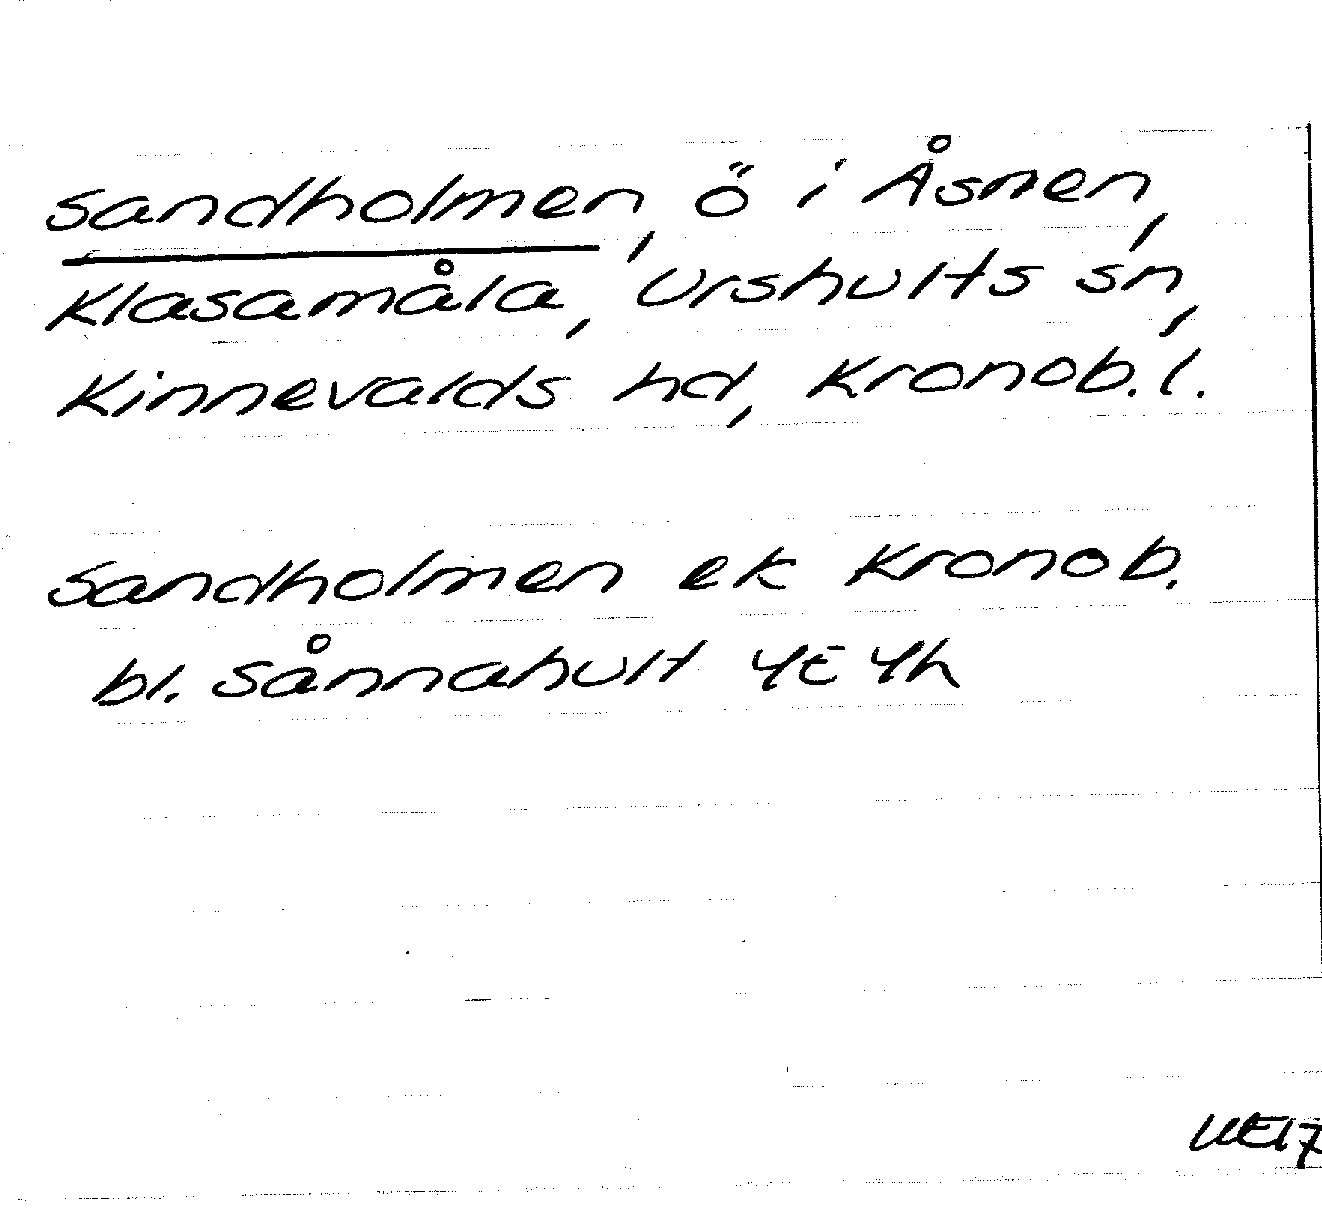 Sandholmen, ö i Åsnen,
Klasamåla, Urshults sn,
Kinnevalds hd, Kronob. l.
Sandholmen ek Kronob.
bl. Sånnahult 4E 4h